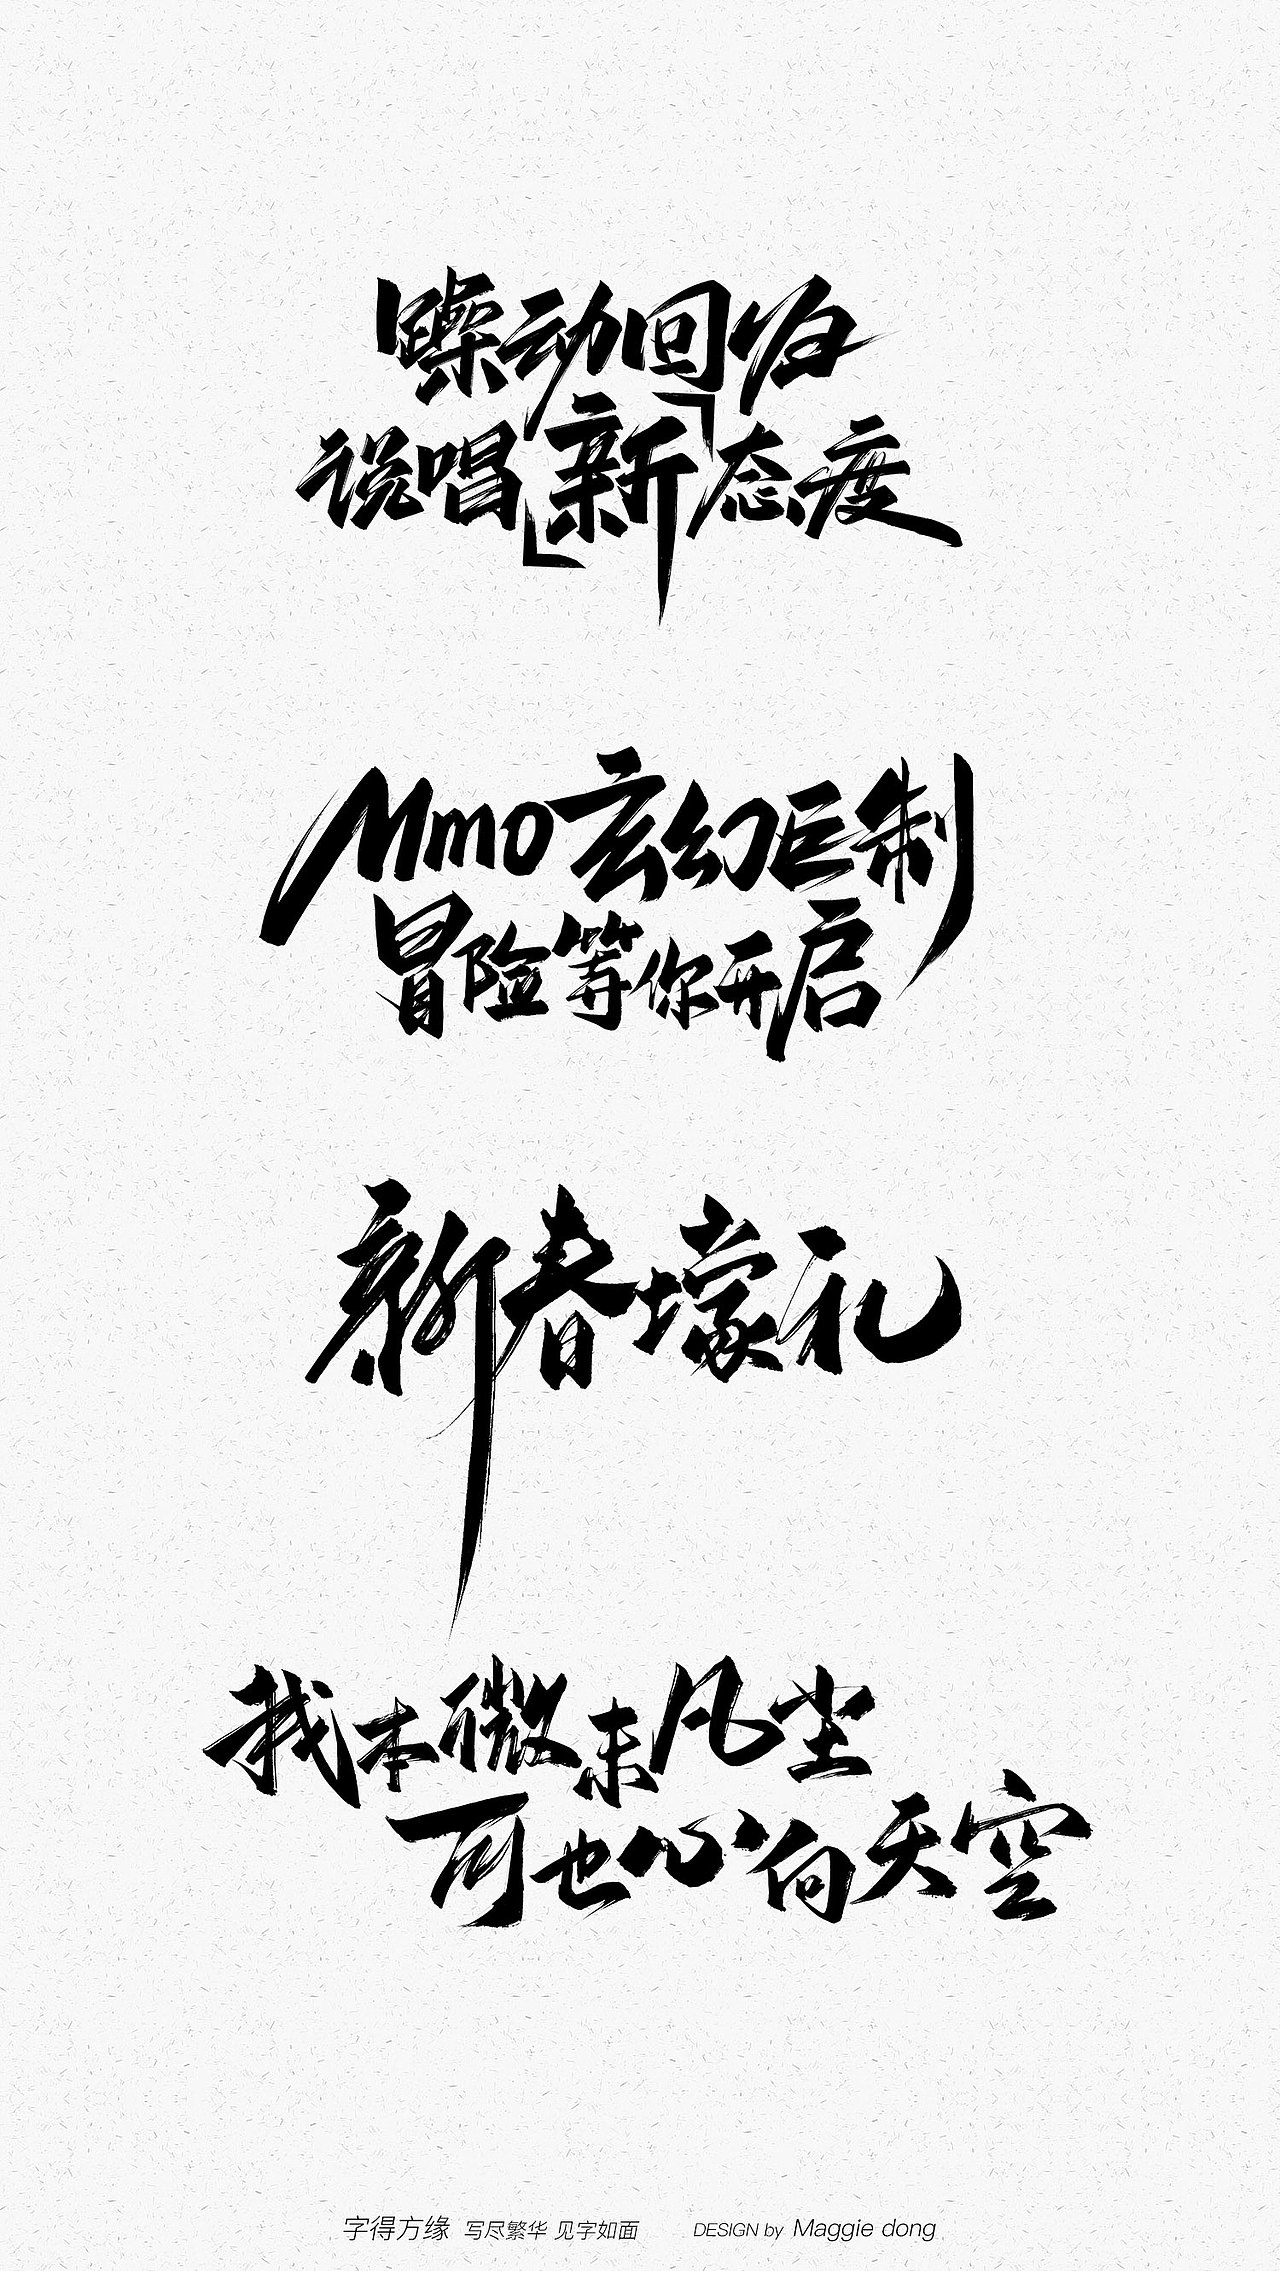 躁动回归
说唱「新」态度
Mmo玄幻巨制
冒险等你开启
新春壕礼
我本微末凡尘
可也心向天空
字得方缘 写尽繁华 见字如面 DESIGN by Maggie dong